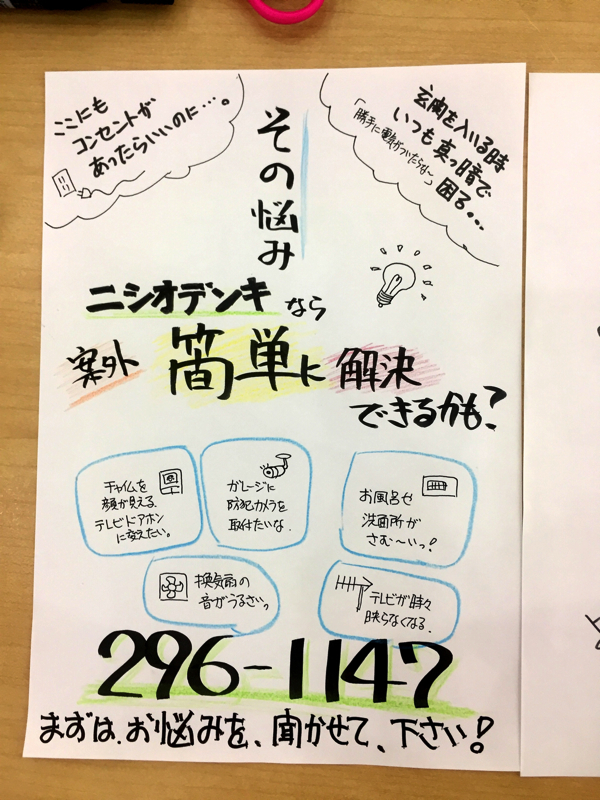 ここにも
コンセントが
あったらいいのに…。
玄関を入いる時
いつも真っ暗で
「勝手に電気がついたらな～」
困る…
その悩み
ニシオデンキなら
案外簡単に解決
できるかも?
チャイムを
顔が見える
テレビドアホン
に変えたい。
ガレージに
防犯カメラを
取付たいな
お風呂や
洗面所が
さむ～いっ!
換気扇の
音がうるさいっ
テレビが時々
映らなくなる.
296-1147
まずは、お悩みを、聞かせて、下さい!